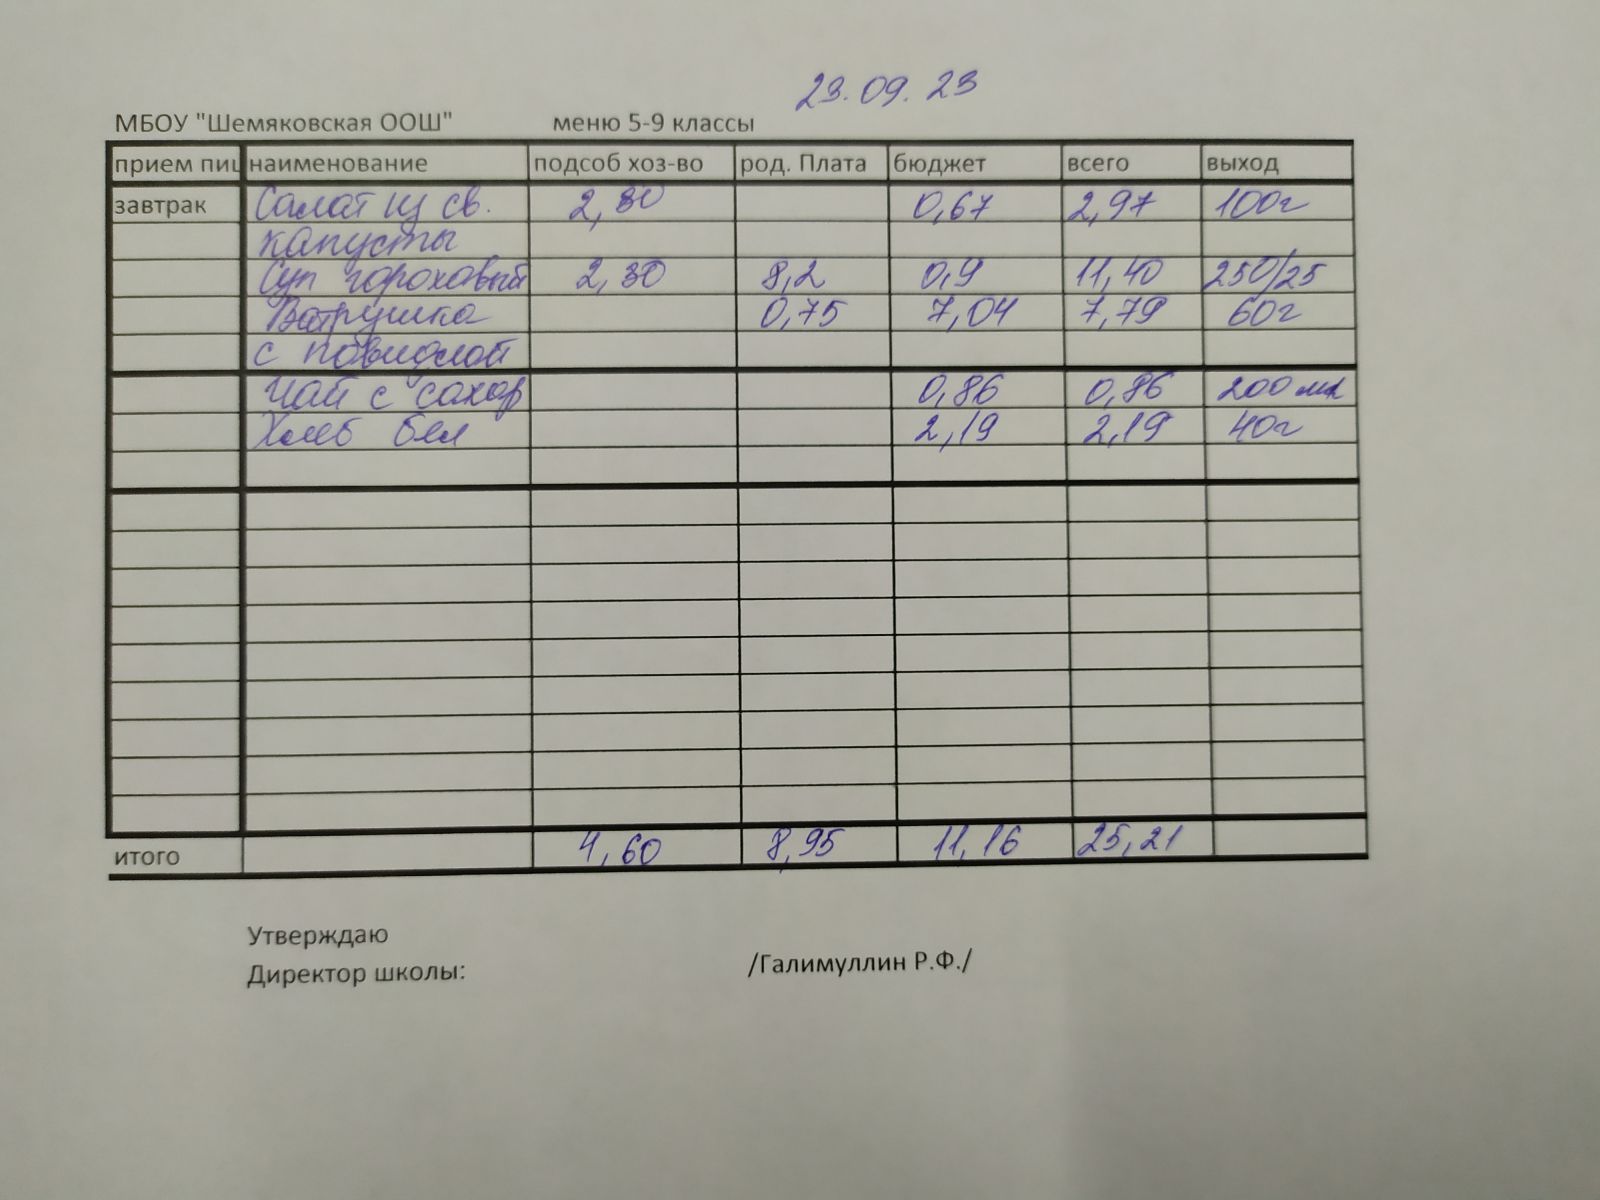 23.09.23
МБОУ "Шемяковская ООШ" меню 5-9 классы
прием пиц наименование подсоб хоз-во род. Плата бюджет всего выход
завтрак Салат из св. 2,30 0,67 2,97 100г
капусты
Суп гороховый 2,30 8,2 0,9 11,40 250/25
Ватрушка 0,75 7,04 7,79 60г
с повидлой
Чай с сахар 0,86 0,86 200 мл
Хлеб бел 2,19 2,19 40г
итого 4,60 8,95 11,16 25,21
Утверждаю
Директор школы: /Галимуллин Р.Ф./